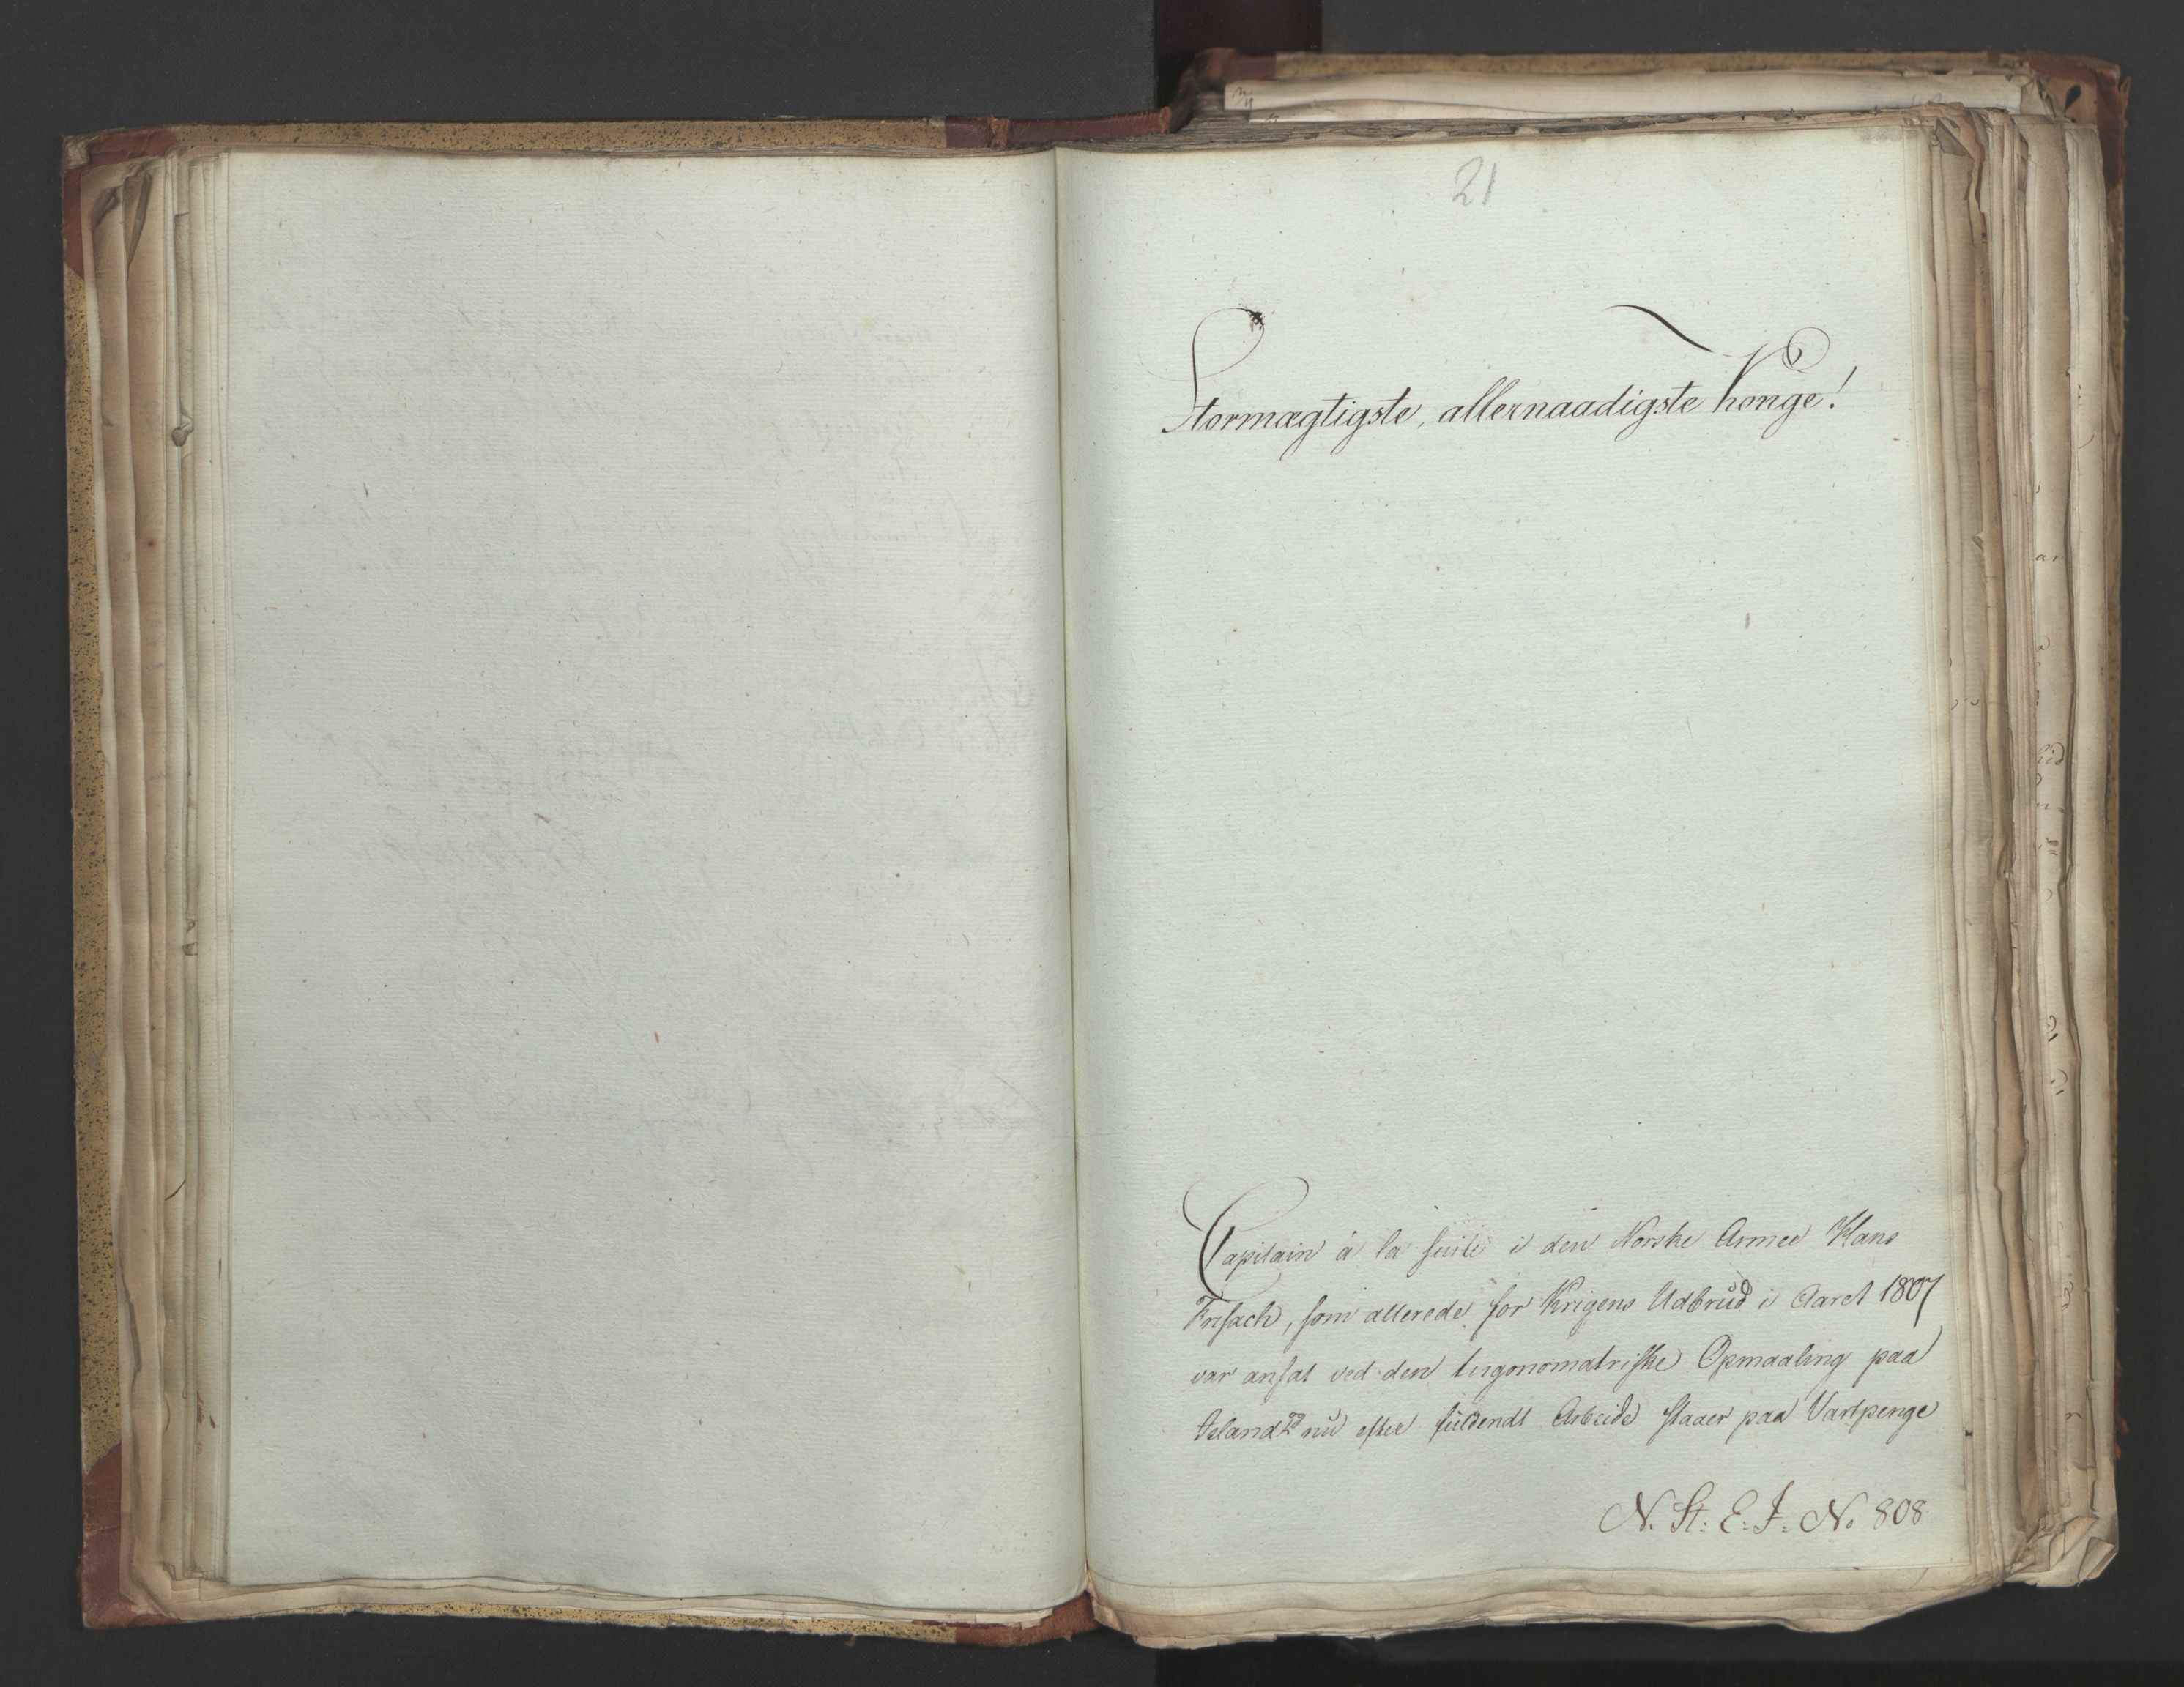 21
Stormægtigste, allernaadigste Konge!
Capitain à la suite i den Norske Armee Hans
Frisach, som allerede før Krigens Udbrud i Aaret 1807
var ansat ved den trigonomatriske Opmaaling paa
Island nu efter fuldendt Arbeide staaer paa Vartpenge
N. St: E: J: No 808